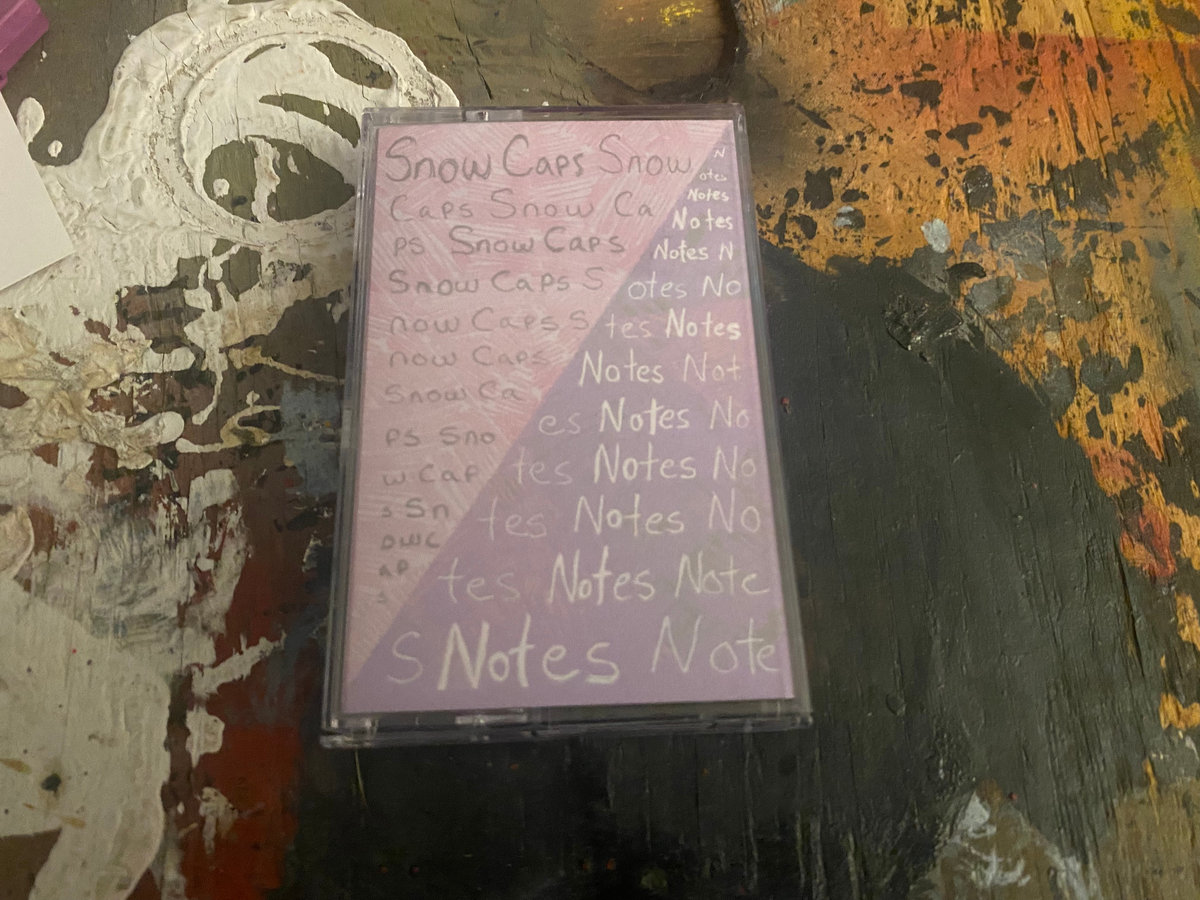 Snow Caps Snow
Caps Snow Ca
ps Snow Caps
Snow Caps S
now Caps S
now Caps
Snow Ca
ps Sno
w Cap
s Sn
ow C
ap
s
N
otes
Notes
Notes
Notes N
otes No
tes Notes
Notes Not
es Notes No
tes Notes No
tes Notes No
tes Notes Note
s Notes Note